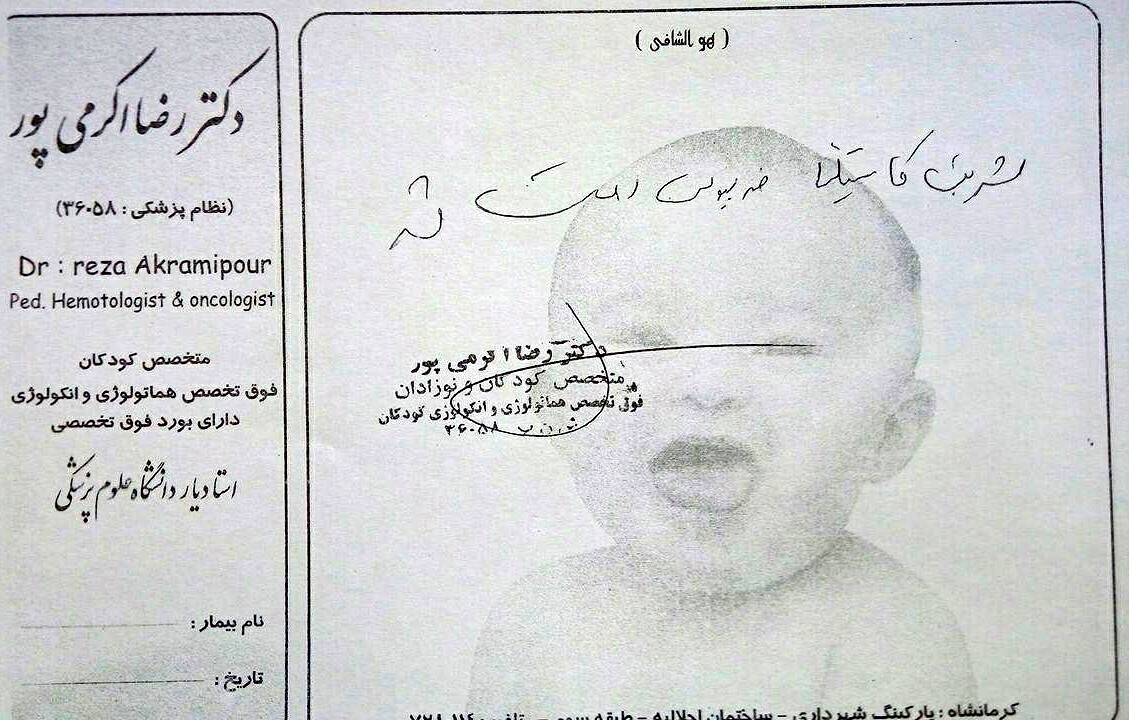 دکتر رضا اکرمی پور
(نظام پزشکی : ۳۶۰۵۸)
Dr : reza Akramipour
Ped. Hemotologist & oncologist
متخصص کودکان
فوق تخصص هماتولوژی و انکولوژی
دارای بورد فوق تخصصی
استادیار دانشگاه علوم پزشکی
نام بیمار :
تاریخ :
( هو الشافی )
دکتر رضا اکرمی پور
متخصص کودکان و نوزادان
فوق تخصص هماتولوژی و انکولوژی کودکان
۳۶۰۵۸
کرمانشاه : پارکینگ شهرداری - ساختمان اجلالیه - طبقه سوم -